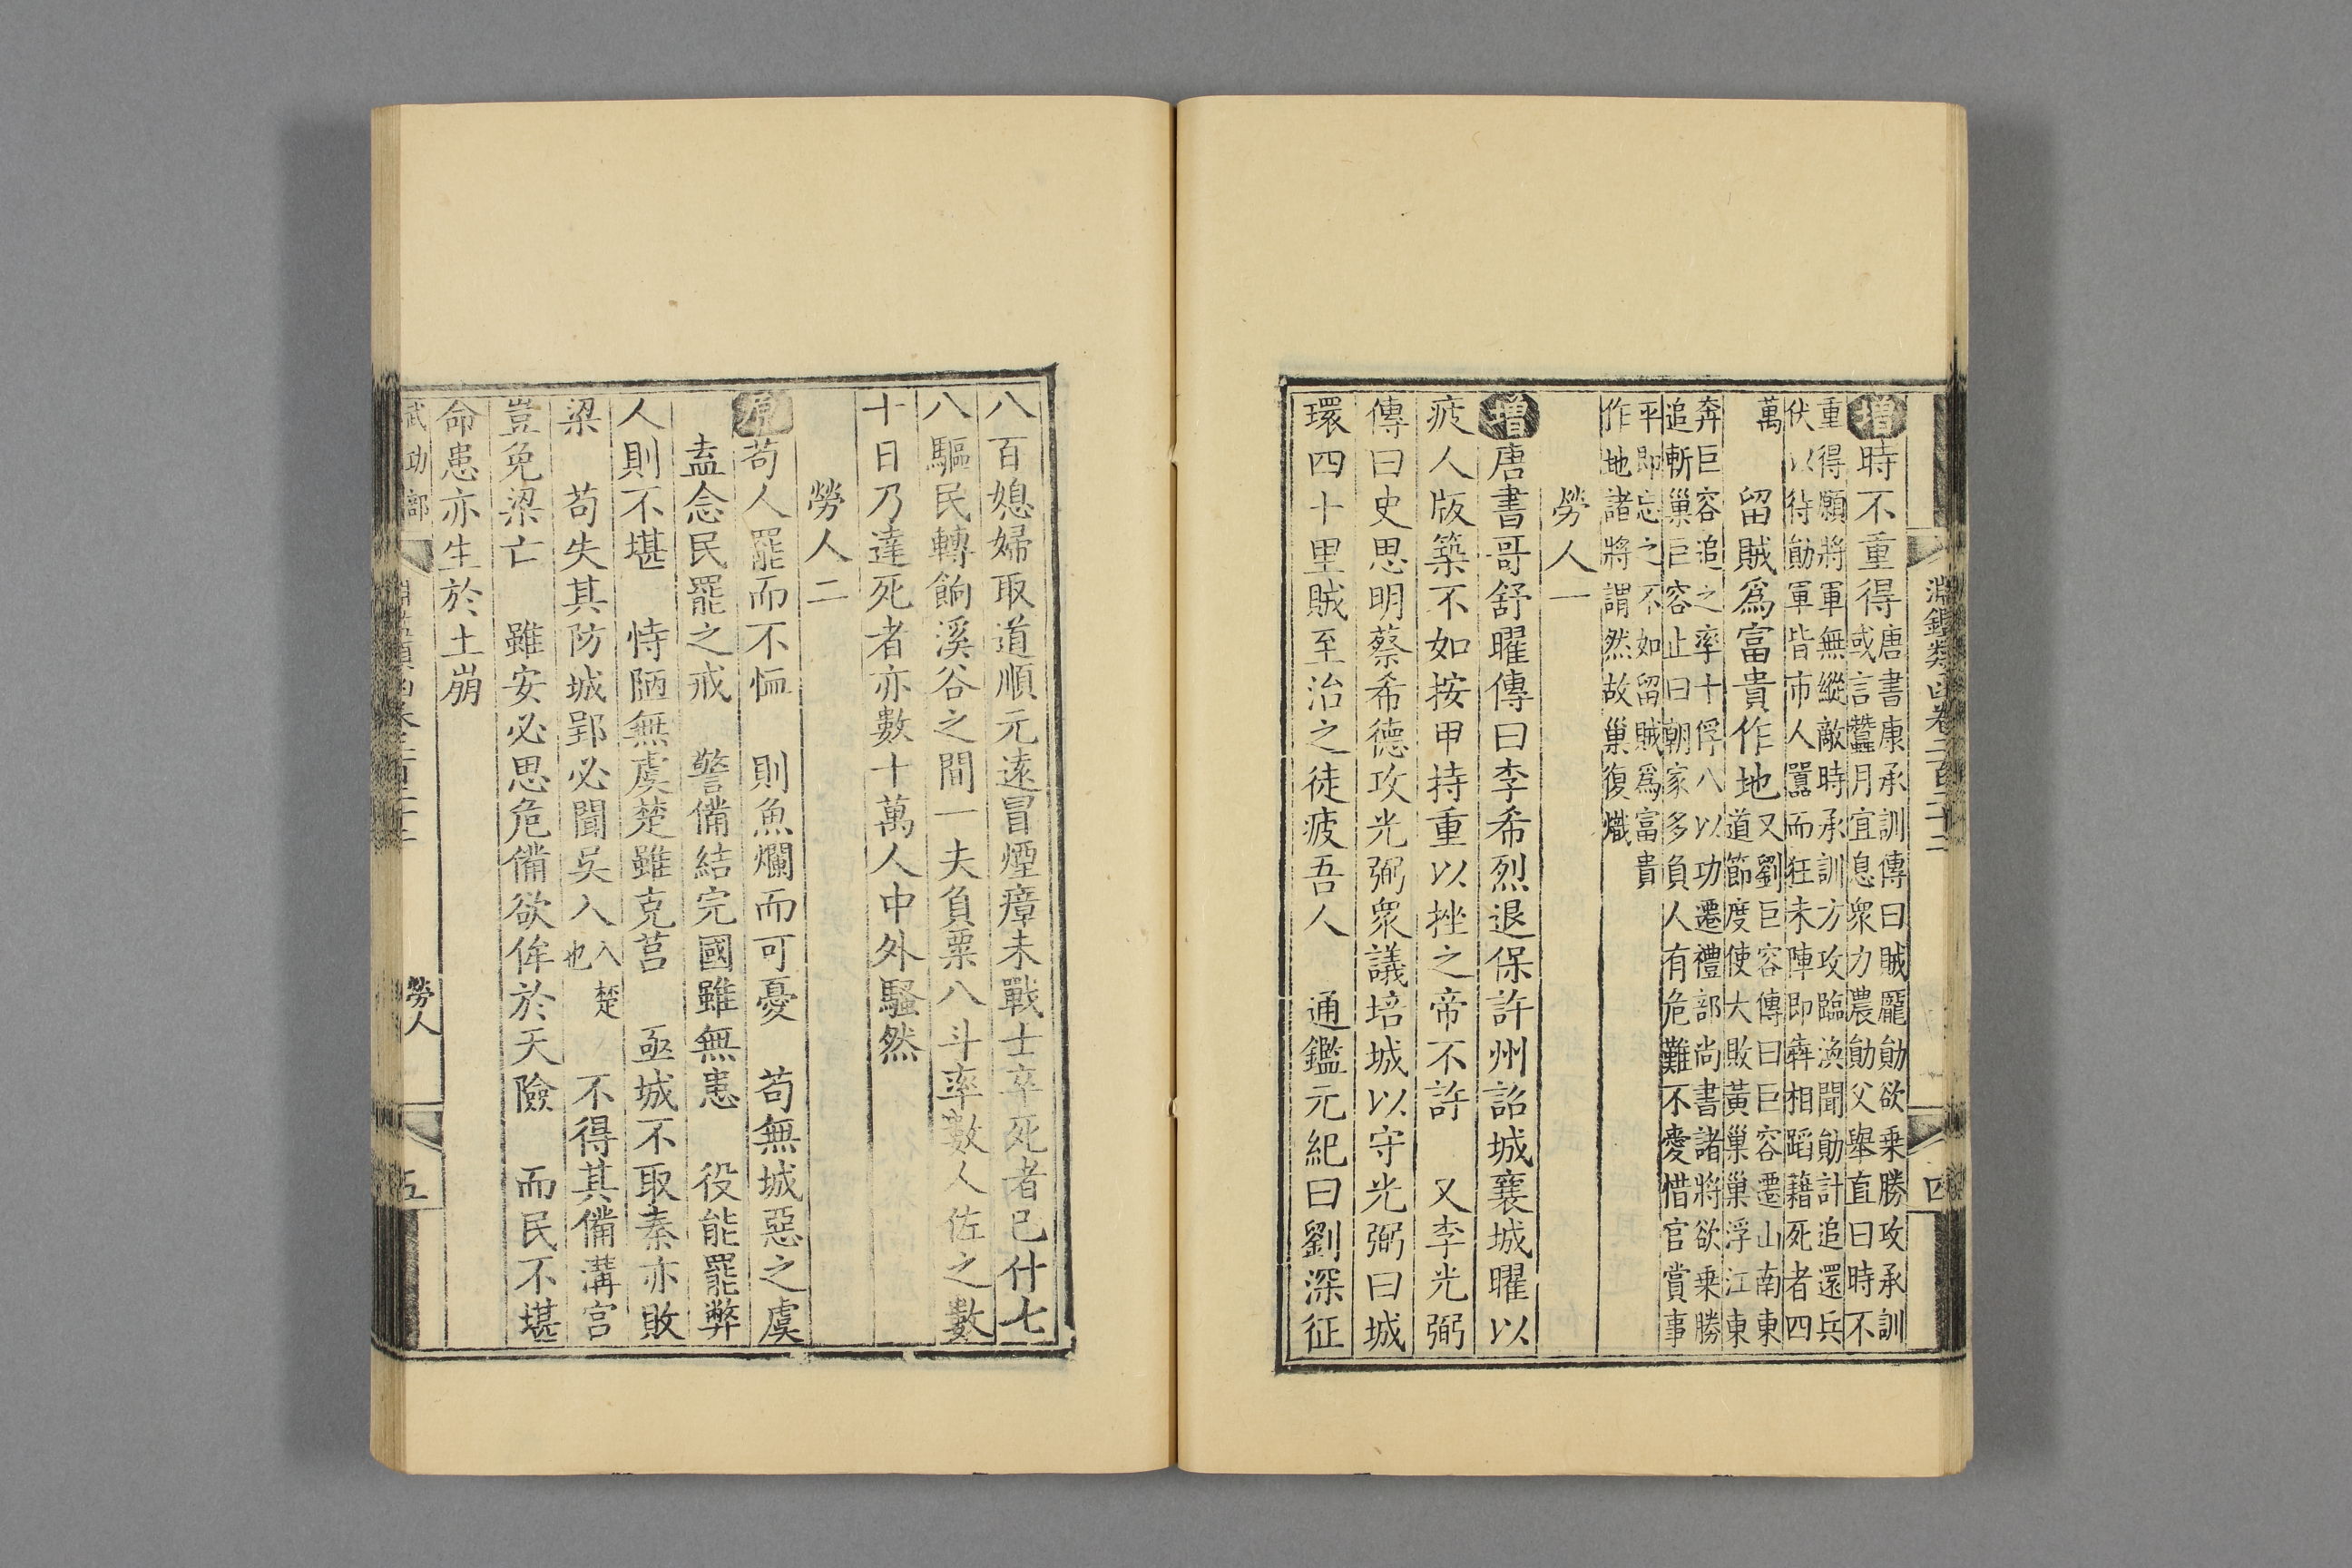 淵鑑類函卷二百二十二 四
增時不重得
唐書康承訓傳曰賊龎勛欲乗勝攻承訓
或言蠶月宜息衆力農勛父舉直曰時不
重得願將軍無縱敵時承訓方攻臨渙聞勛計追還兵
伏以待勛軍皆市人囂而狂未陣即犇相蹈藉死者四
萬
留賊爲富貴作地
又劉巨容傳曰巨容遷山南東
道節度使大敗黃巢巢浮江東
奔巨容追之率十俘八以功遷禮部尚書諸將欲乗勝
追斬巢巨容止曰朝家多負人有危難不愛惜官賞事
平即忘之不如留賊爲富貴
作地諸將謂然故巢復熾
勞人一
增唐書哥舒曜傳曰李希烈退保許州詔城襄城曜以
疲人版築不如按甲持重以挫之帝不許 又李光弼
傳曰史思明蔡希德攻光弼衆議培城以守光弼曰城
環四十里賊至治之徒疲吾人 通鑑元紀曰劉深征
八百媳婦取道順元遠冒煙瘴未戰士卒死者已什七
八驅民轉餉溪谷之間一夫負粟八斗率數人佐之數
十日乃達死者亦數十萬人中外騷然
勞人二
原苟人罷而不恤 則魚爛而可憂 苟無城惡之虞
盍念民罷之戒 警備結完國雖無患 役能罷弊
人則不堪 恃陋無虞楚雖克莒 亟城不取秦亦敗
梁 苟失其防城郢必聞吳入
入楚
也
不得其備溝宫
豈免梁亡 雖安必思危備欲侔於天險 而民不堪
命患亦生於土崩
武功部 勞人 五